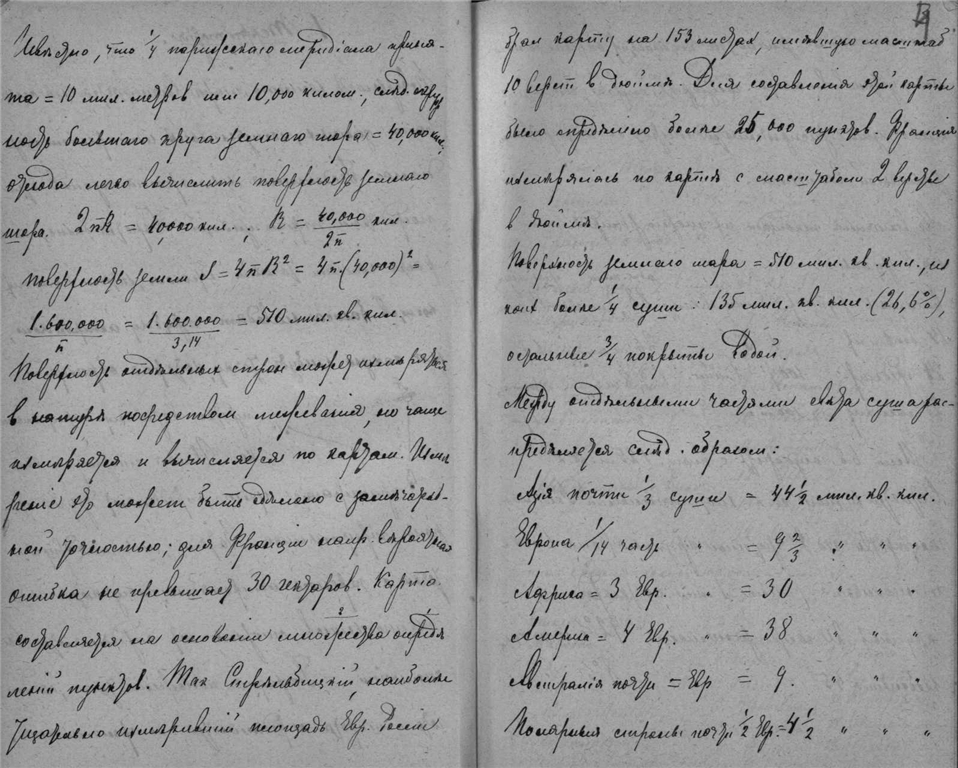 Извѣстно, что 1/4 парижскаго меридіана приня-
та = 10 мил. метров или 10,000 килом., слѣд. окруж
ность большаго круга земнаго шара = 40,000 кил.,
отсюда легко вычислить поверхность земнаго
шара. 2πR = 40,000 кил.; R = 40,000/2π кил.
Поверхность земли S = 4πR² = 4π.(40,000)² =
1.600,000/π = 1.600.000/3,14 = 510 мил. кв. кил.
Поверхность отдѣльных стран может измѣряться
в натурѣ посредством межеванія, но чаще
измѣряется и вычисляется по картам. Измѣ
реніе это может быть сдѣлано с замѣчатель-
ной точностью; для Франціи напр. вѣроятная
ошибка не превышает 30 гектаров. Карта
составляется на основаніи множества опредѣ
леній пунктов. Так Стрѣльбицкій, наиболѣе
тщательно измѣрившій площадь Евр. Россіи
брал карту на 153 листах, имѣвшую масштаб
10 верст в дюймѣ. Для составленія этой карты
было опредѣлено болѣе 25,000 пунктов. Франція
измѣрялась по картѣ с масштабом 2 версты
в дюймѣ.
Поверхность земнаго шара = 510 мил. кв. кил., из
коих болѣе 1/4 суши: 135 мил. кв. кил. (26,6%),
остальные 3/4 покрыты водой.
Между отдѣльными частями свѣта суша рас-
предѣляется слѣд. образом:
Азія почти 1/3 суши = 44 1/2 мил. кв. кил.
Европа 1/14 часть " = 9 2/3 " " "
Африка = 3 Евр. " = 30 " " "
Америка = 4 Евр. " = 38 " " "
Австралія почти = Евр = 9. " " "
Полярныя страны почти 1/2 Евр. = 4 1/2 " " "